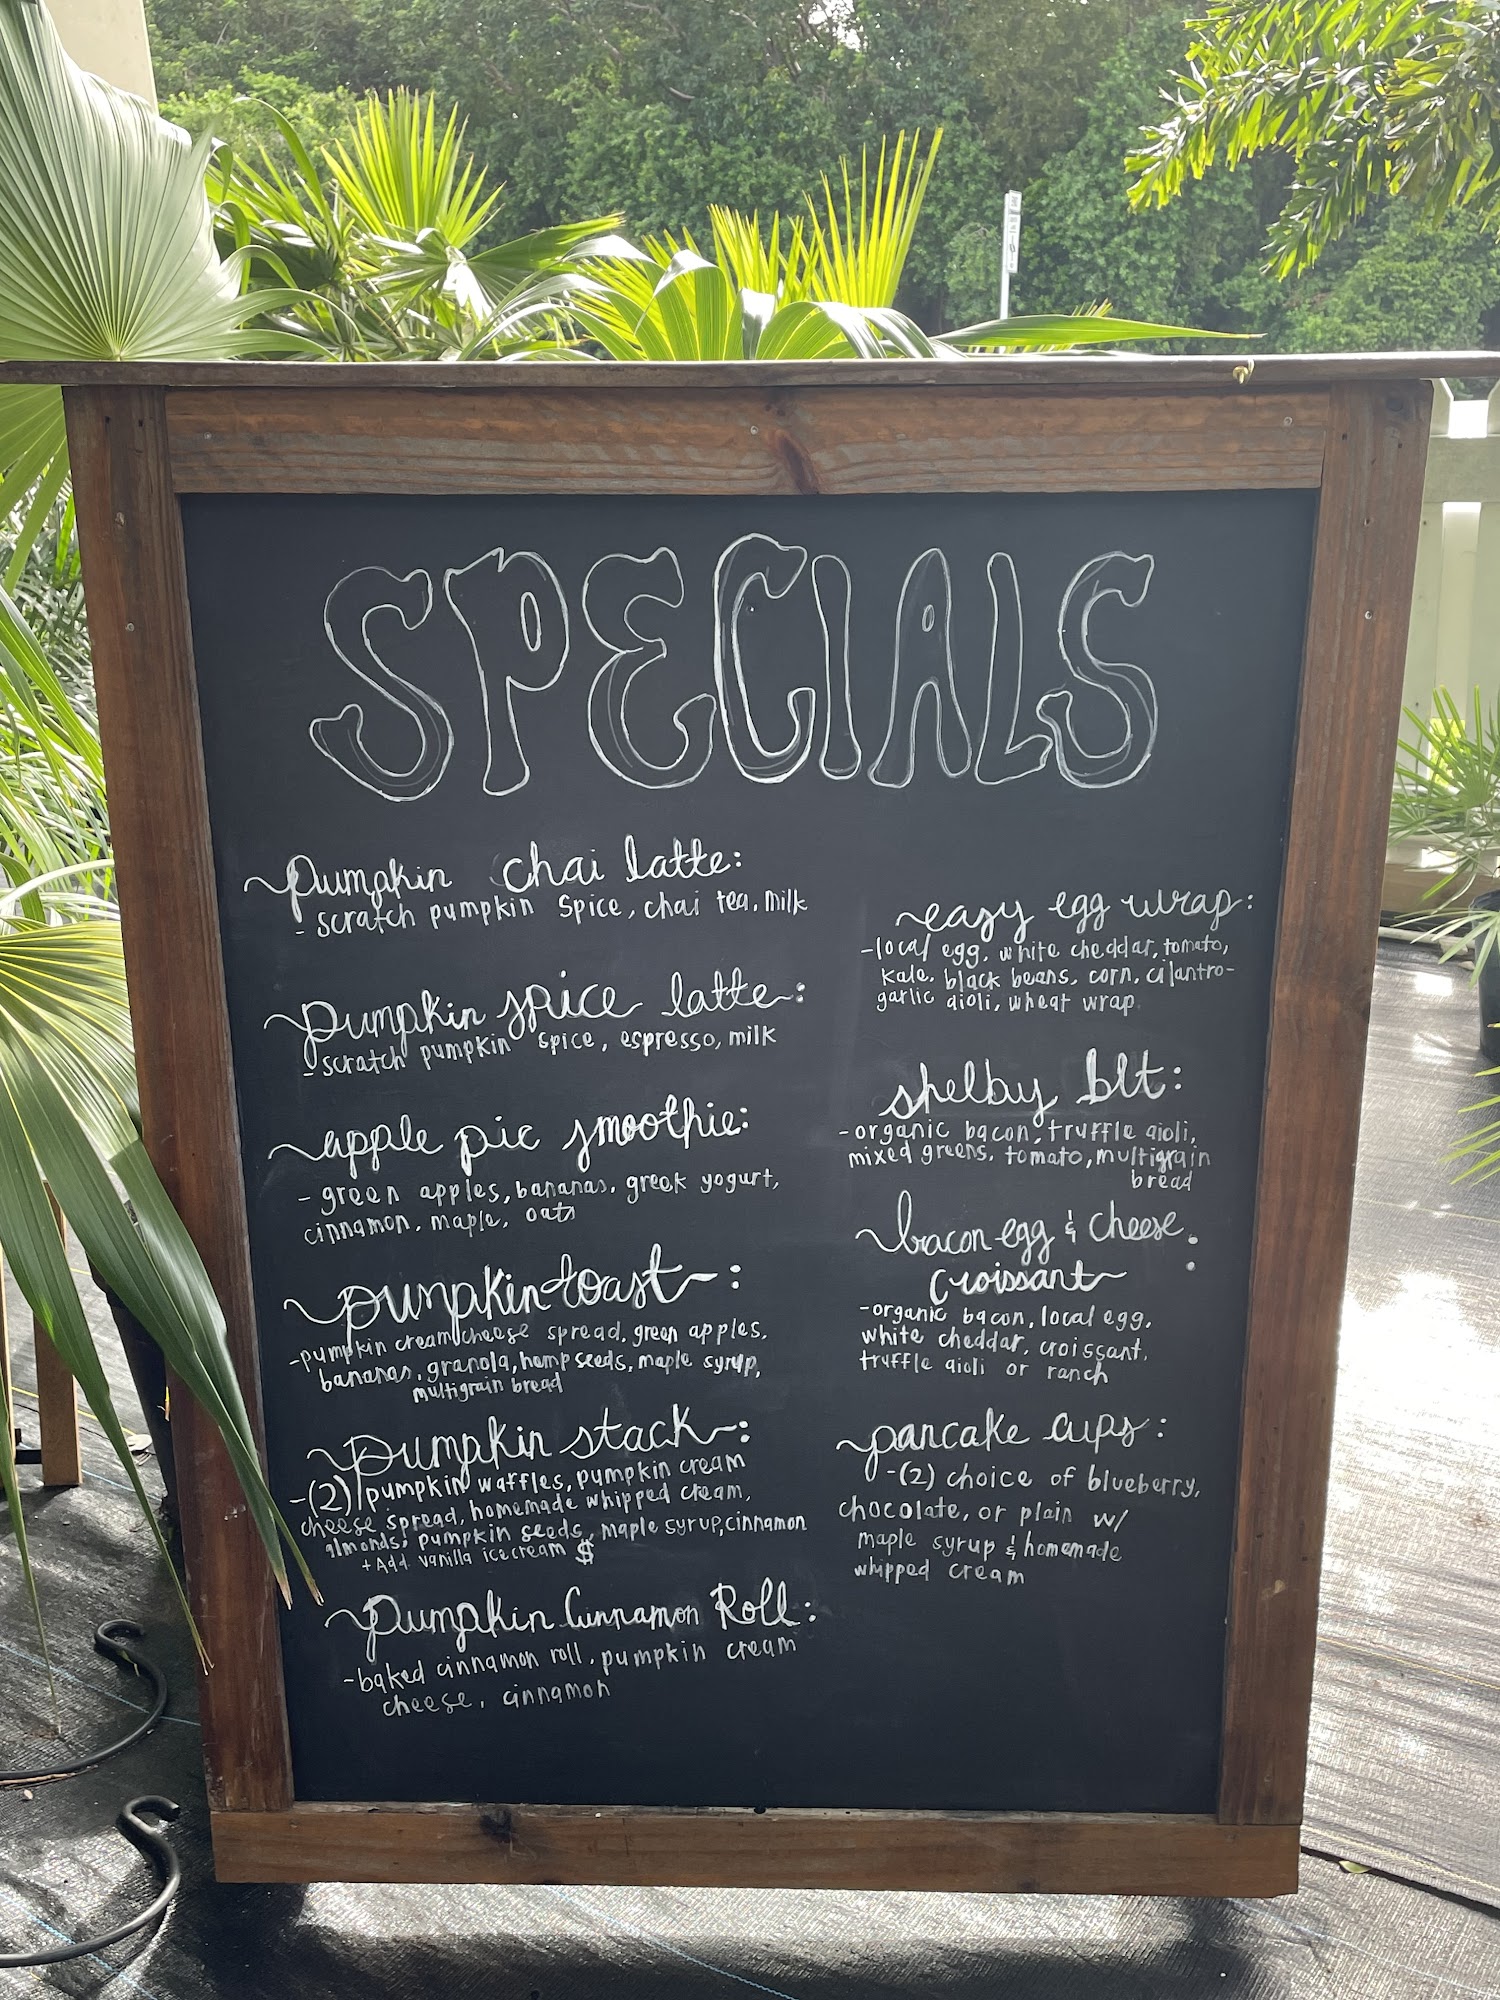 SPECIALS
pumpkin chai latte:
- scratch pumpkin spice, chai tea, milk
pumpkin spice latte:
- scratch pumpkin spice, espresso, milk
apple pie smoothie:
- green apples, bananas, greek yogurt,
cinnamon, maple, oats
pumpkin toast:
- pumpkin cream cheese spread, green apples,
bananas, granola, hemp seeds, maple syrup,
multigrain bread
pumpkin stack:
- (2) pumpkin waffles, pumpkin cream
cheese spread, homemade whipped cream,
almonds, pumpkin seeds, maple syrup, cinnamon
+ Add vanilla ice cream $
pumpkin Cinnamon Roll:
- baked cinnamon roll, pumpkin cream
cheese, cinnamon
eazy egg wrap:
- local egg, white cheddar, tomato,
kale, black beans, corn, cilantro-
garlic aioli, wheat wrap
shelby blt:
- organic bacon, truffle aioli,
mixed greens, tomato, multigrain
bread
bacon egg & cheese
croissant:
- organic bacon, local egg,
white cheddar, croissant,
truffle aioli or ranch
pancake cups:
- (2) choice of blueberry,
chocolate, or plain w/
maple syrup & homemade
whipped cream